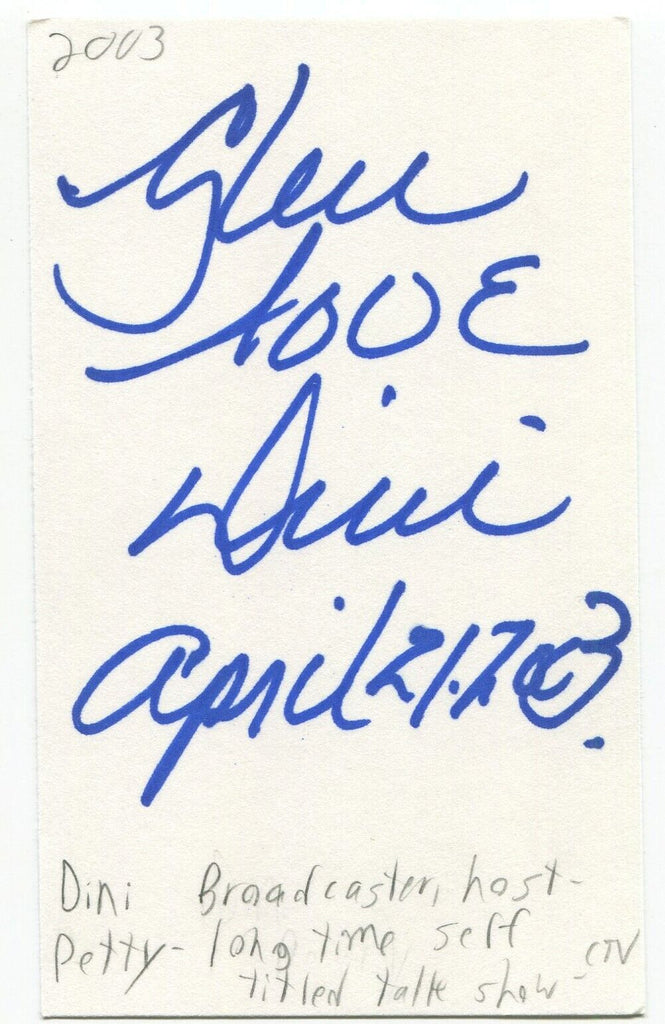 2003
Glen
LOVE
Dini
April 21. 2003.
Dini Broadcaster, host-
Petty- long time self
titled talk show- CTV